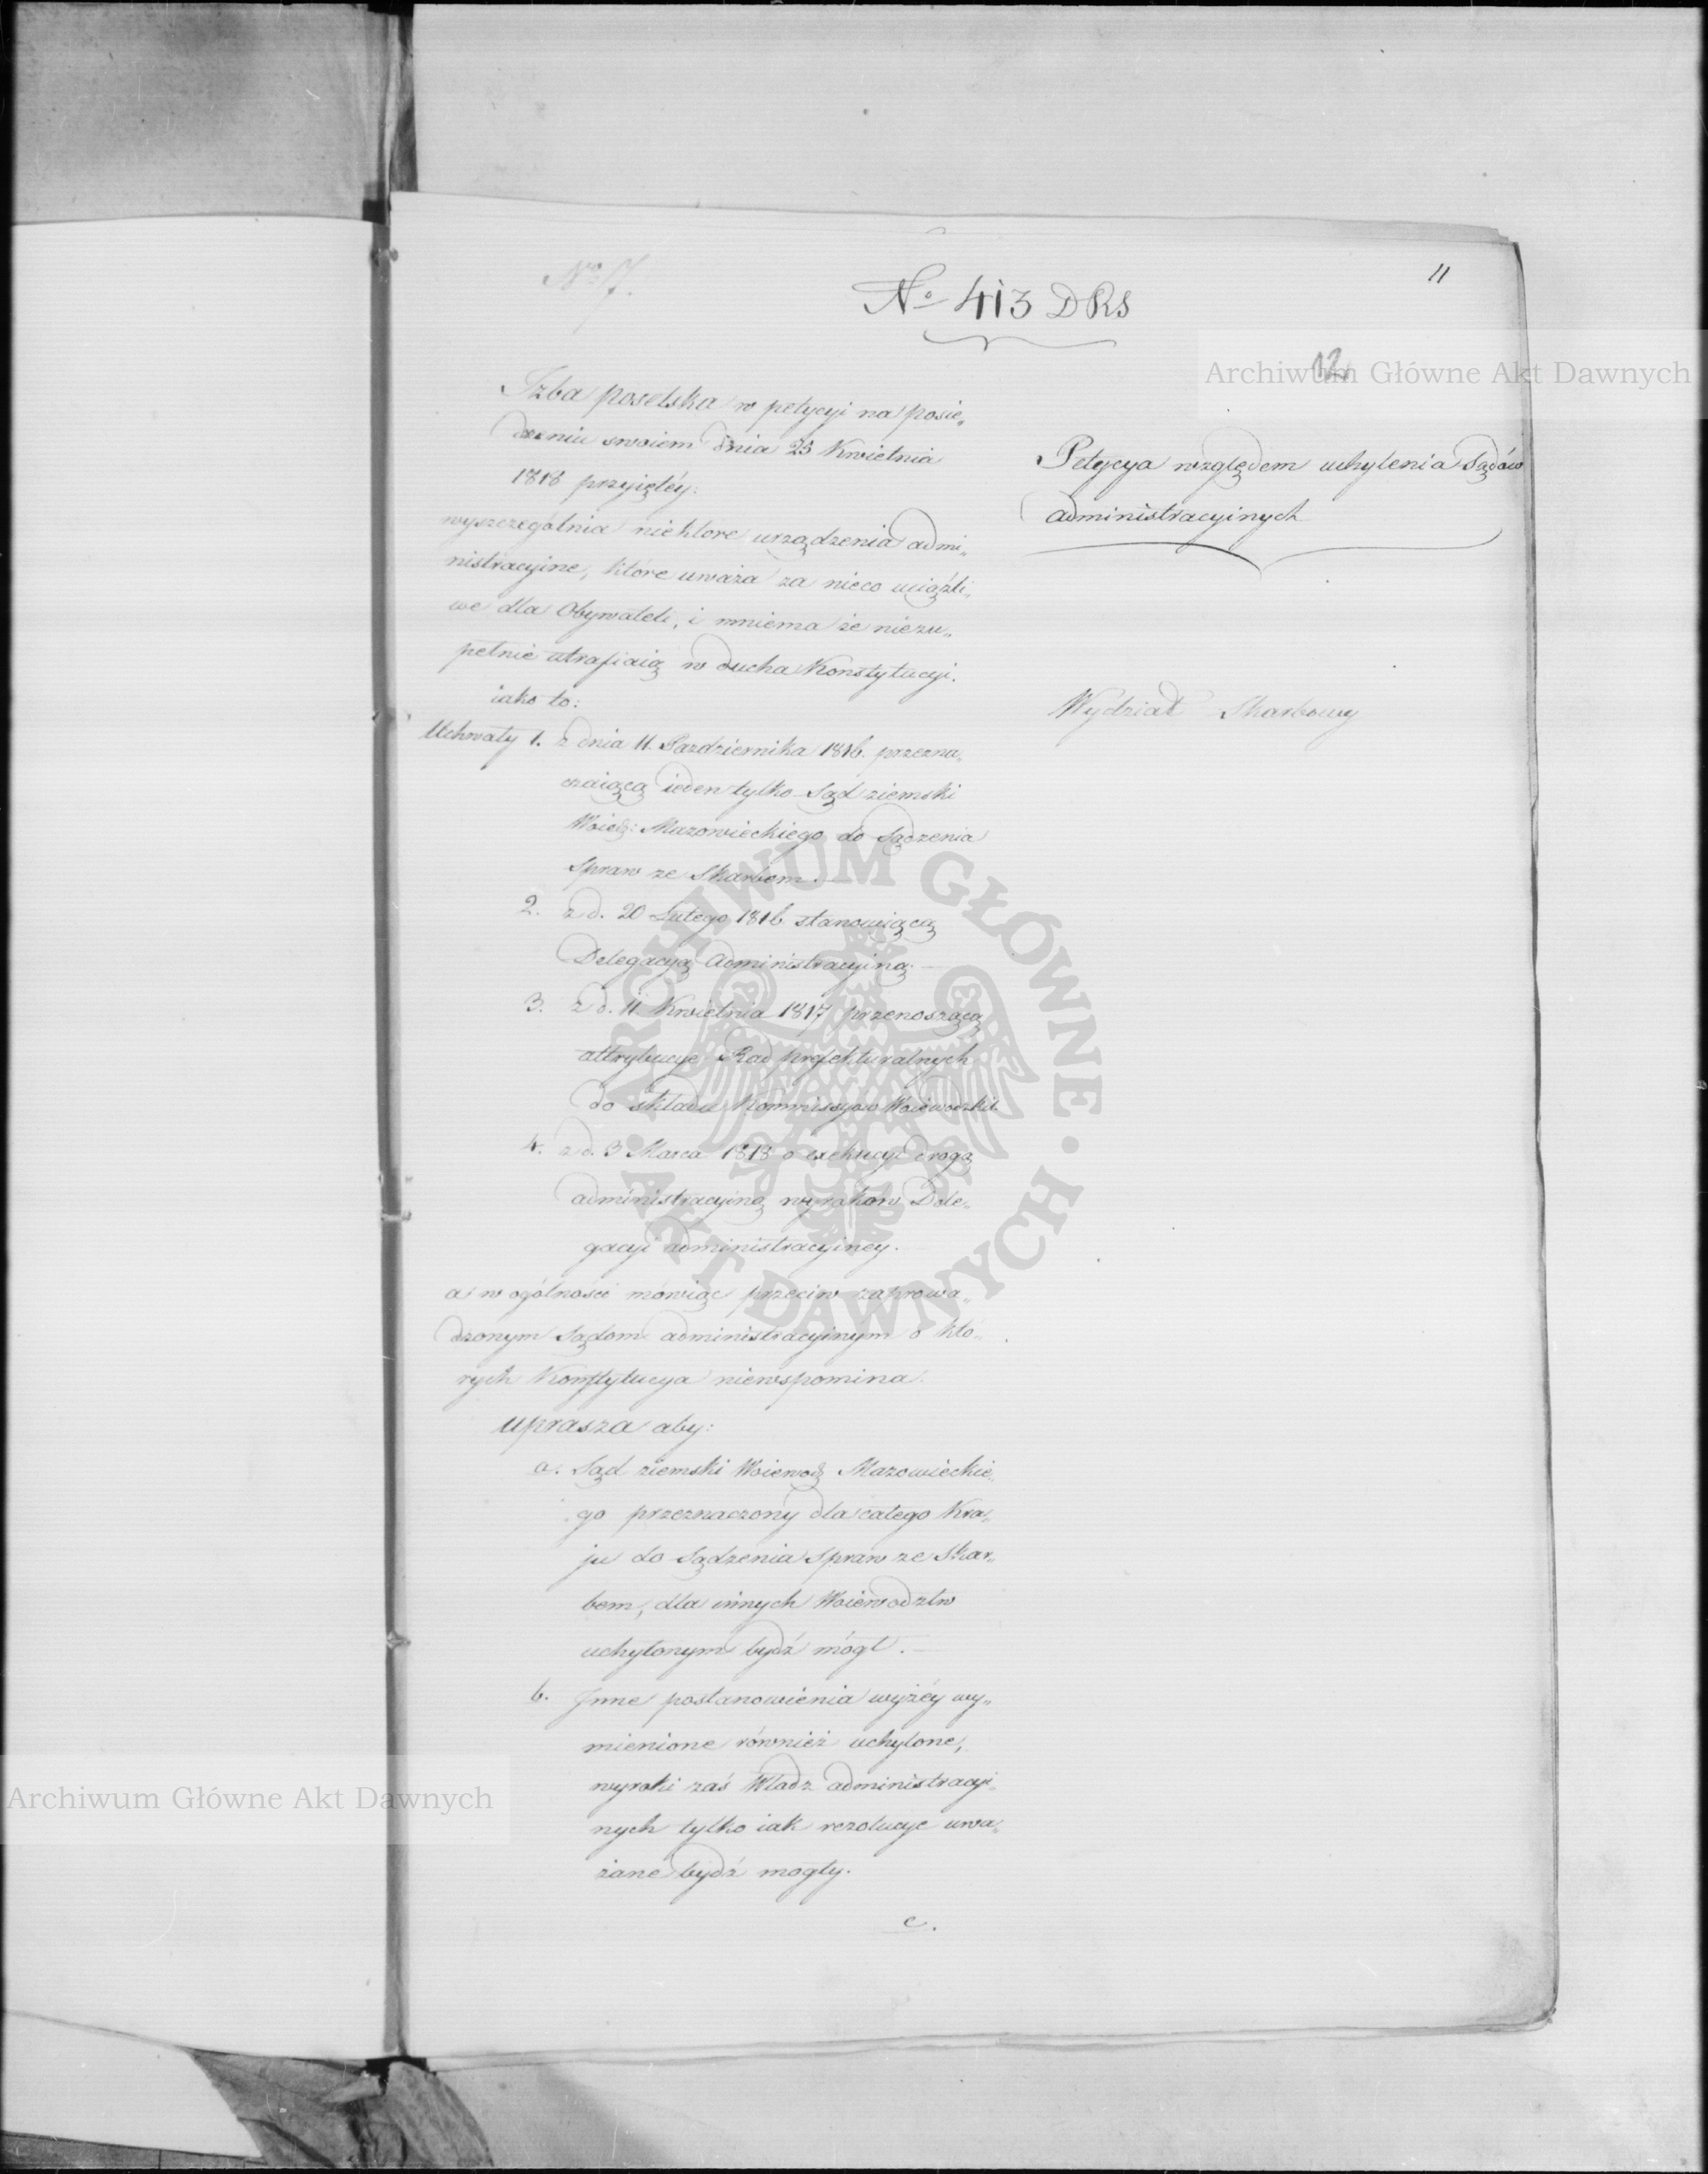 No 7.
No 413 DRS
11
12
Izba poselska w petycyi na posie„
dzeniu swoiem dnia 25 Kwietnia
1818 przyiętéy:
wyszczególnia niektore urządzenia admi„
nistracyine, które uważa za nieco uciążli„
we dla Obywateli, i mniema że niezu„
pełnie utrafiaią w ducha Konstytucyi.
iako to:
Uchwały 1. z dnia 11. Pazdziernika 1816. przezna„
czaiącą ieden tylko Sąd ziemski
Woiedz: Mazowieckiego do Sądzenia
Spraw ze Skarbem.—
2. z d. 20 Lutego 1816 stanowiącą
Delegacyą Administracyiną.—
3. z d. 11. Kwietnia 1817 przenoszącą
attrybucye Rad prefekturalnych
do składu Kommissyow Woiewodzkich
4. z d. 3 Marca 1818 o exekucyi drogą
administracyiną wyrokow Dele„
gacyi administracyiney.—
a w ogólności mówiąc przeciw zaprowa„
dzonym Sądom administracyinym o któ„
rych Konstytucya niewspomina.
uprasza aby:
a. Sąd ziemski Woiewodz Mazowieckie„
go przeznaczony dla całego Kra„
ju do Sądzenia Spraw ze Skar„
bem, dla innych Woiewodztw
uchylonym bydź mógł.—
b. Inne postanowienia wyżéy wy„
mienione również uchylone,
wyroki zaś Władz administracyi„
nych tylko iak rezolucye uwa„
żane bydź mogły.
c.
Petycya względem uchylenia Sądów
administracyinych
Wydział Skarbowy
Archiwum Główne Akt Dawnych
Archiwum Główne Akt Dawnych
ARCHIWUM GŁÓWNE • AKT DAWNYCH •